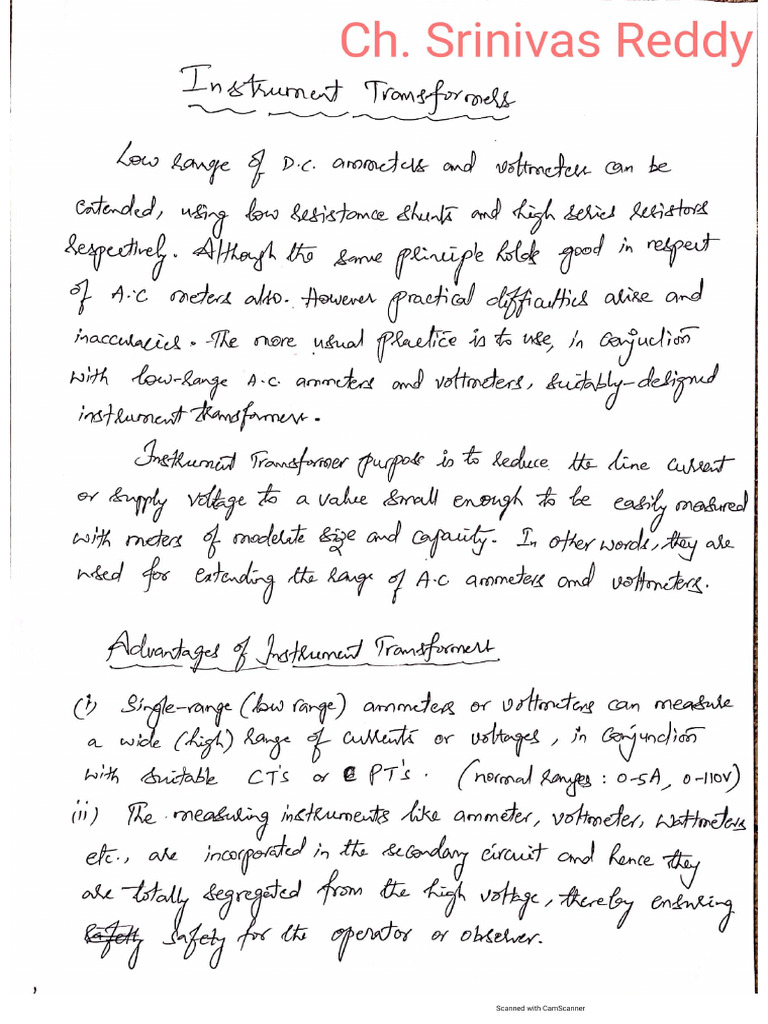 Ch. Srinivas Reddy
Instrument Transformers
Low range of D.C. ammeters and voltmeters can be
extended, using low resistance shunts and high series resistors
respectively. Although the same principle holds good in respect
of A.C meters also. However practical difficulties arise and
inaccuracies. The more usual practice is to use, in conjuction
with low-range A.C. ammeters and voltmeters, suitably-designed
instrument transformers.
Instrument Transformer purpose is to reduce the line current
or supply voltage to a value small enough to be easily measured
with meters of moderate size and capacity. In other words, they are
used for extending the range of A.C ammeters and voltmeters.
Advantages of Instrument Transformers
(i) Single-range (low range) ammeters or voltmeters can measure
a wide (high) range of currents or voltages, in conjunction
with suitable CT's or PT's. (normal ranges: 0-5A, 0-110V)
(ii) The measuring instruments like ammeter, voltmeter, wattmeters
etc., are incorporated in the secondary circuit and hence they
are totally segregated from the high voltage, thereby ensuring
safety safety for the operator or observer.
Scanned with CamScanner